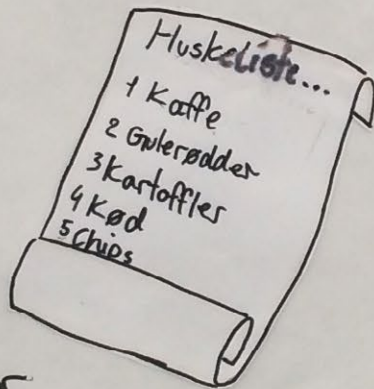 Huskeliste...
1 Kaffe
2 Gulerødder
3 Kartoffler
4 Kød
5 Chips